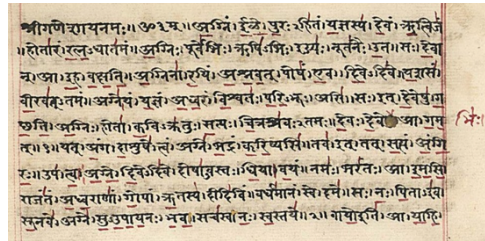 श्रीगणेशायनमः॥ औ३म्॥ अग्निं। ईळे। पुरःऽहितं। यज्ञस्य। देवं। ऋत्विजं
।होतारं। रत्नऽधातमं। अग्निः। पूर्वेभिः। ऋषिऽभिः। ईड्यः। नूतनैः। उत। सः। देवा
न्। आ। इह। वक्षति। अग्निना। रयिं। अश्नवत्। पोषं। एव। दिवेऽदिवे। यशसं।
वीरवत्ऽतमं। अग्ने। यं। यज्ञं। अध्वरं। विश्वतः। परिऽभूः। असि। सः। इत्। देवेषु। ग
च्छति। अग्निः। होता। कविऽक्रतुः। सत्यः। चित्रश्रवःऽतमः। देवः। देवे आ। गम
भिः।
त्॥१॥ यत्। अंग। दाशुषे। त्वं। अग्ने। भद्रं। करिष्यसि। तव। इत्। तत्। सत्यं। अंगि
रः। उप। त्वा। अग्ने। दिवेऽदिवे। दोषाऽवस्तः। धिया। वयं। नमः। भरंतः। आ। इमसि।
राजंतं। अध्वराणां। गोपां। ऋतस्य। दीदिविं। वर्धमानं। स्वे। दमे। सः। नः। पिताऽइव।
सूनवे। अग्ने। सुऽउपायनः। भव। सचस्व। नः। स्वस्तये॥२॥ वायो इति। आ। याहि।